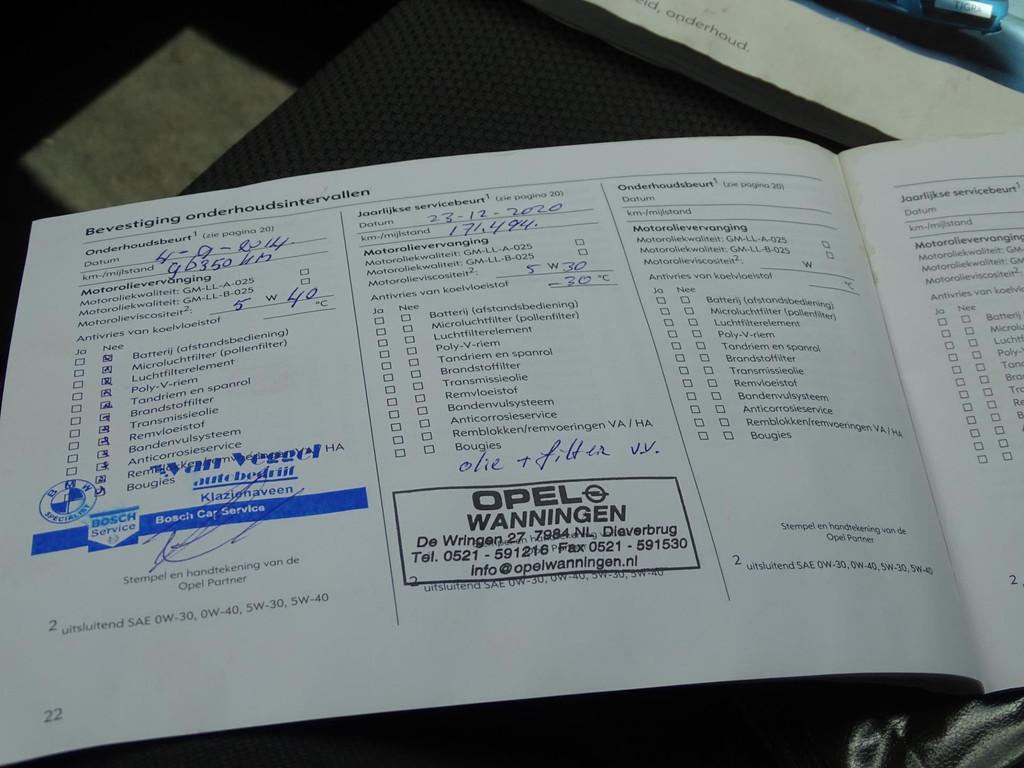 TIGRA
eid, onderhoud.
Bevestiging onderhoudsintervallen
Onderhoudsbeurt¹ (zie pagina 20)
Datum 4-9-2014
km-/mijlstand
Motorolievervanging
Motoroliekwaliteit: GM-LL-A-025 □
Motoroliekwaliteit: GM-LL-B-025 □
Motorolieviscositeit²: 5 W 40
Antivries van koelvloeistof °C
Ja Nee
Batterij (afstandsbediening)
Microluchtfilter (pollenfilter)
Luchtfilterelement
Poly-V-riem
Tandriem en spanrol
Brandstoffilter
Transmissieolie
Remvloeistof
Bandenvulsysteem
Anticorrosieservice
Remblokken/remvoeringen VA / HA
Bougies
van Veggel
autobedrijf
Klazienaveen
BMW
SPECIALIST
BOSCH
Service
Bosch Car Service
Stempel en handtekening van de
Opel Partner
2 uitsluitend SAE 0W-30, 0W-40, 5W-30, 5W-40
22
Jaarlijkse servicebeurt¹ (zie pagina 20)
Datum 23-12-2020
km-/mijlstand 171.494.
Motorolievervanging
Motoroliekwaliteit: GM-LL-A-025 □
Motoroliekwaliteit: GM-LL-B-025 □
Motorolieviscositeit²: 5 W 30
Antivries van koelvloeistof -30 °C
Ja Nee
□ □ Batterij (afstandsbediening)
□ □ Microluchtfilter (pollenfilter)
□ □ Luchtfilterelement
□ □ Poly-V-riem
□ □ Tandriem en spanrol
□ □ Brandstoffilter
□ □ Transmissieolie
□ □ Remvloeistof
□ □ Bandenvulsysteem
□ □ Anticorrosieservice
□ □ Remblokken/remvoeringen VA / HA
□ □ Bougies
olie + filter v.v.
OPEL
WANNINGEN
De Wringen 27 7984 NL Dieverbrug
Tel. 0521 - 591216 Fax 0521 - 591530
info@opelwanningen.nl
2 uitsluitend SAE 0W-30, 0W-40, 5W-30, 5W-40
Onderhoudsbeurt¹ (zie pagina 20)
Datum
km-/mijlstand
Motorolievervanging
Motoroliekwaliteit: GM-LL-A-025 □
Motoroliekwaliteit: GM-LL-B-025 □
Motorolieviscositeit²: W
Antivries van koelvloeistof °C
Ja Nee
□ □ Batterij (afstandsbediening)
□ □ Microluchtfilter (pollenfilter)
□ □ Luchtfilterelement
□ □ Poly-V-riem
□ □ Tandriem en spanrol
□ □ Brandstoffilter
□ □ Transmissieolie
□ □ Remvloeistof
□ □ Bandenvulsysteem
□ □ Anticorrosieservice
□ □ Remblokken/remvoeringen VA / HA
□ □ Bougies
Stempel en handtekening van de
Opel Partner
2 uitsluitend SAE 0W-30, 0W-40, 5W-30, 5W-40
Jaarlijkse servicebeurt¹
Datum
km-/mijlstand
Motorolievervanging
Motoroliekwaliteit: GM
Motoroliekwaliteit: GM
Motorolieviscositeit²:
Antivries van koelvloei
Ja Nee
Batterij
Microlu
Luchtf
Poly-V
Tand
Bra
Tra
Re
2